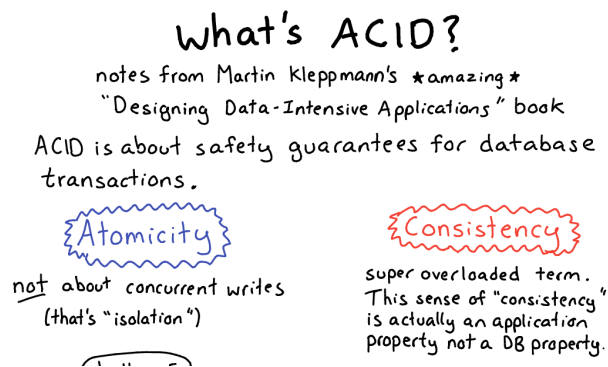 what's ACID?
notes from Martin Kleppmann's *amazing*
"Designing Data-Intensive Applications" book
ACID is about safety guarantees for database
transactions.
Atomicity
not about concurrent writes
(that's "isolation")
Consistency
super overloaded term.
This sense of "consistency"
is actually an application
property not a DB property.